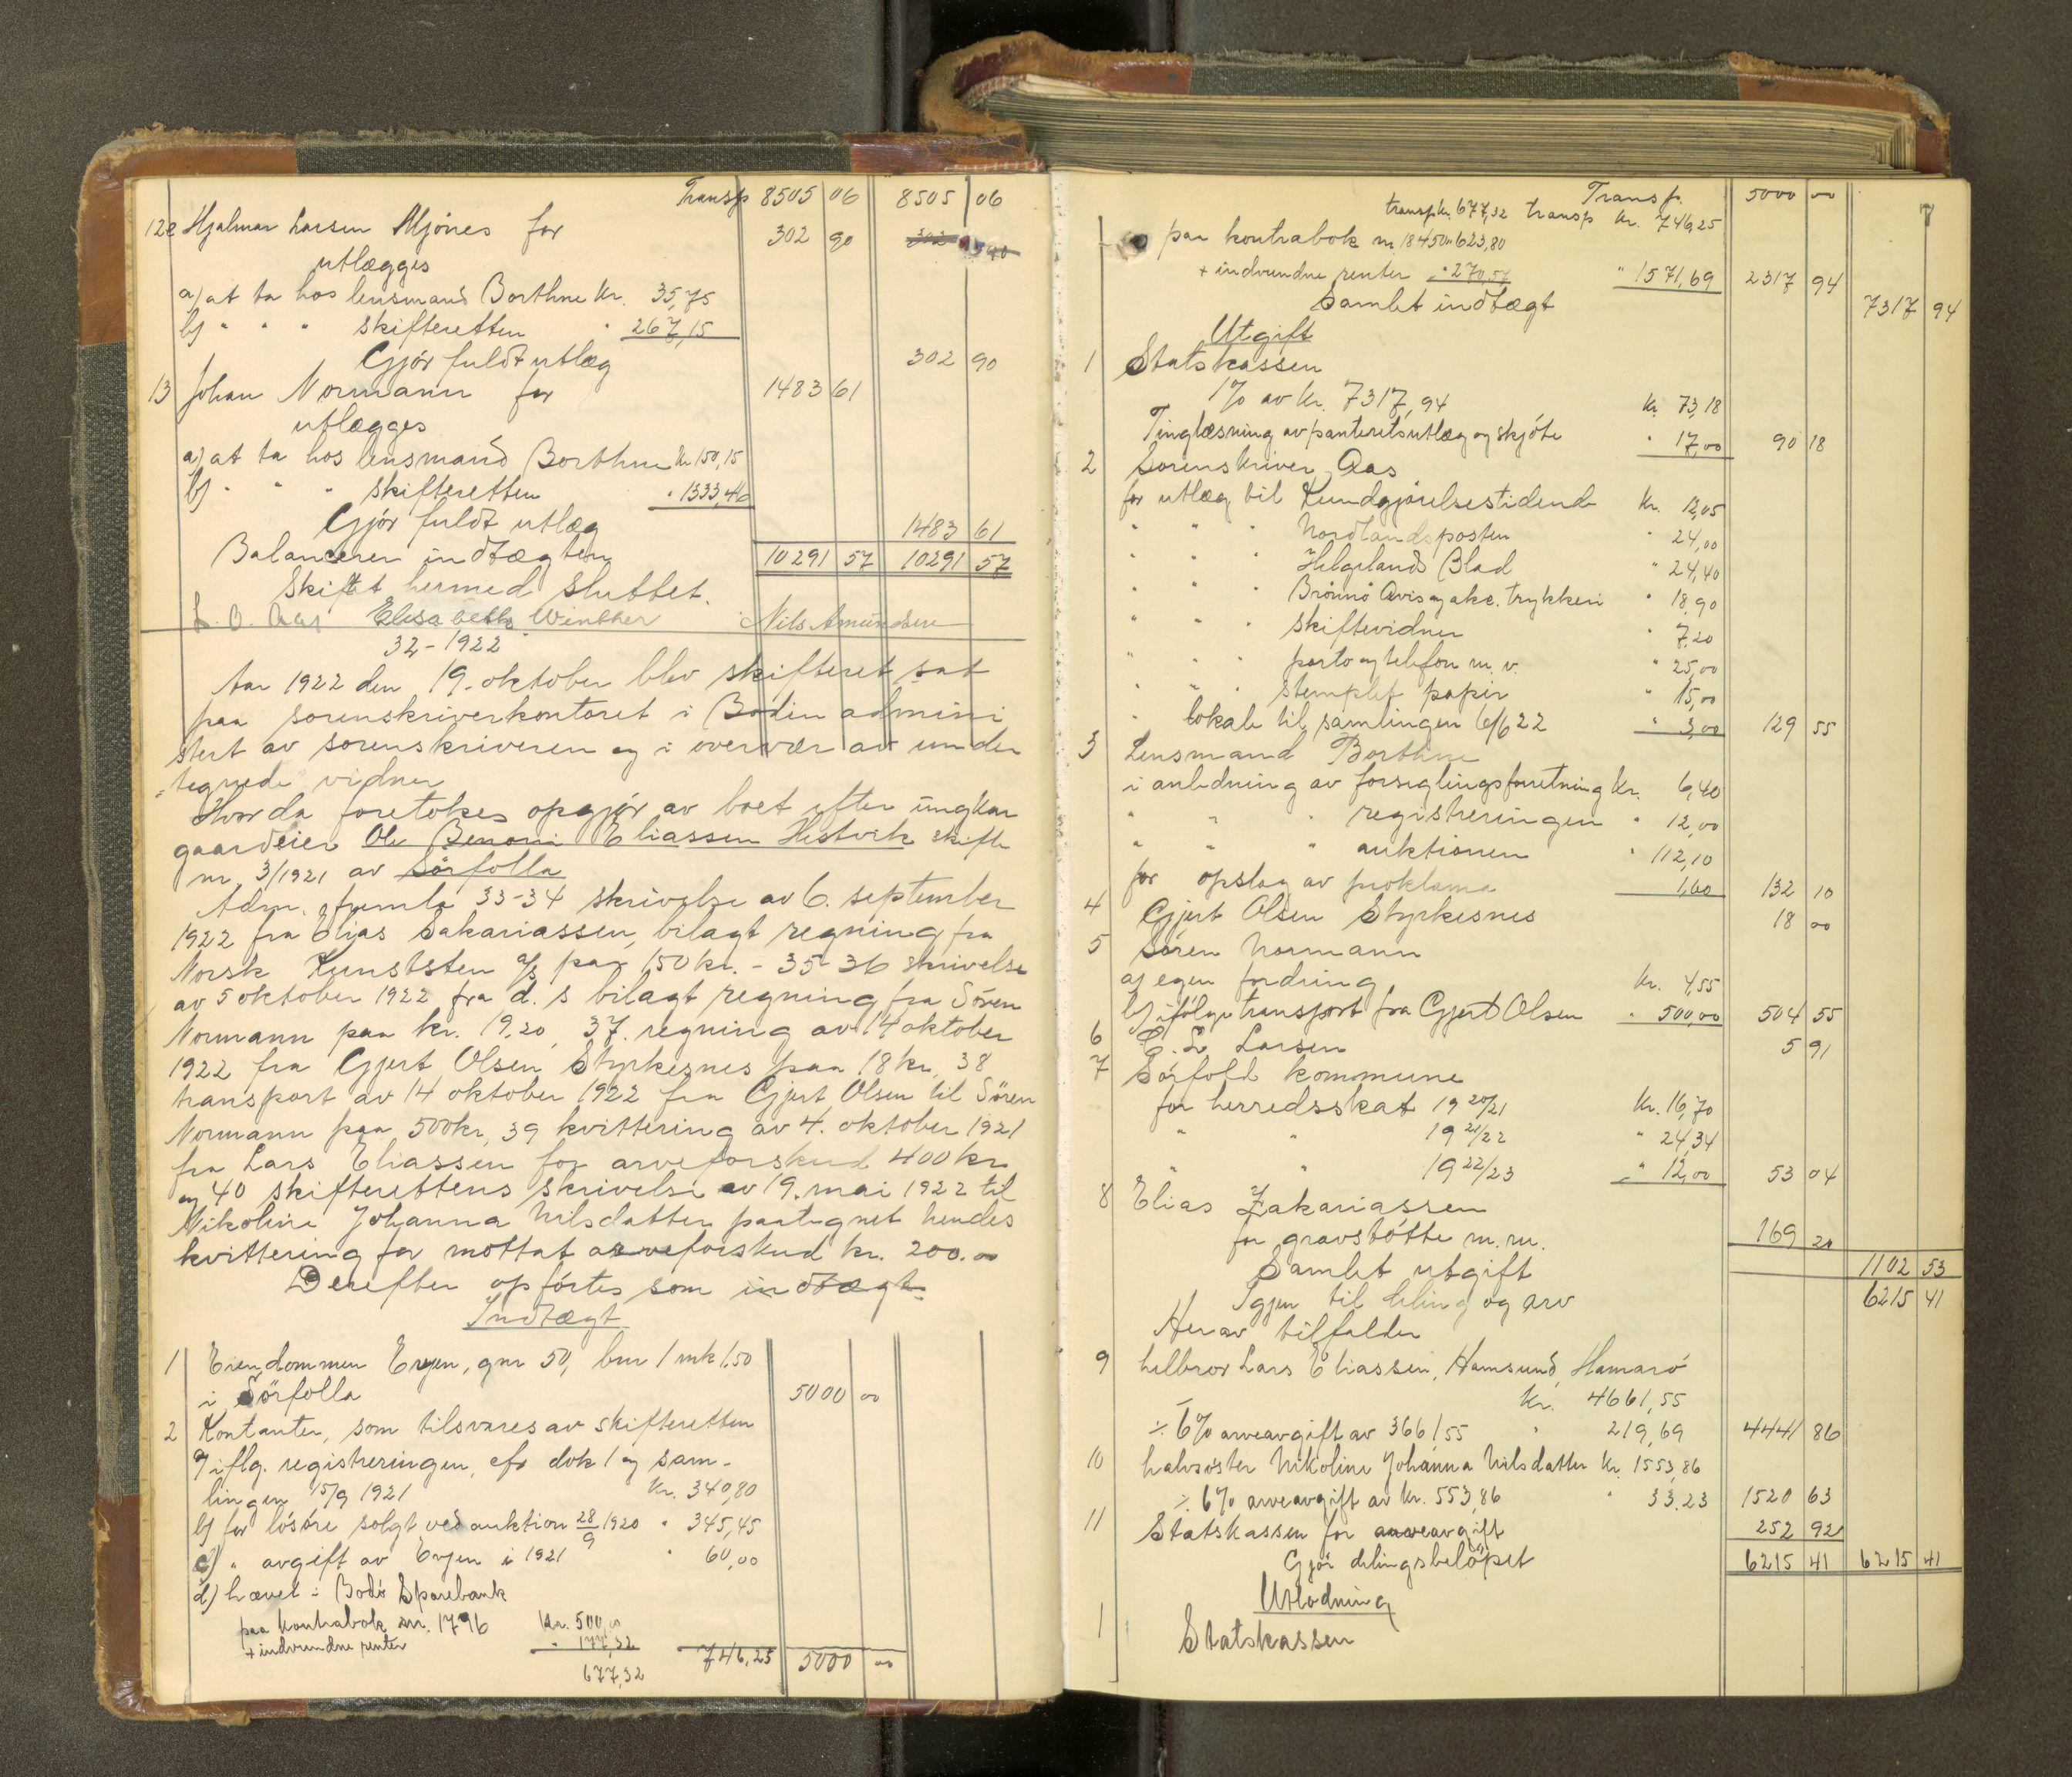 Transp 8505 06 8505 06
12e Hjalmar Larsen Mjönes for 302 90 302 90
utlægges
a) at ta hos lensmand Borthne kr. 35,75
b) " " " skifteretten " 267,15
Gjör fuldt utlæg 302 90
13 Johan Normann for 1483 61
utlægges
a) at ta hos lensmand Borthne kr 150,15
b) " " " skifteretten " 1333,46
Gjör fuldt utlæg 1483 61
Balancerer indtægten 10291 57 10291 57
Skiftet hermed sluttet.
L. O. Aas Elisabeth Winther Nils Amundsen
32 - 1922
Aar 1922 den 19. oktober blev skifteret sat
paa sorenskriverkontoret i Bodin admini
stert av sorenskriveren og i overvær av under
tegnede vidner
Hvorda foretokes opgjör av boet efter ungkar
gaardeier Ole Benoni Eliassen Hestvik skifte
nr. 3/1921 av Sörfolla
Adm. fremla 33-34 skrivelse av 6. september
1922 fra Elias Sakariassen, bilagt regning fra
Norsk Kunststen a/s paa 150 kr. - 35-36 skrivelse
av 5 oktober 1922 fra d. s bilagt regning fra Sören
Normann paa kr. 19,20, 37. regning av 14 oktober
1922 fra Gjert Olsen Styrkesnes paa 18 kr, 38
transport av 14 oktober 1922 fra Gjert Olsen til Sören
Normann paa 500 kr, 39 kvittering av 4. oktober 1921
fra Lars Eliassen for arveforskud 400 kr
og 40 skifterettens skrivelse av 19. mai 1922 til
Nikoline Johanna Nilsdatter paategnet hendes
kvittering for mottat arveforskud kr. 200.00
Derefter opförtes som indtægt:
Indtægt
1 Eiendommen Evjen, gnr 50, bnr 1 mk 1.50
i Sörfolla 5000 00
2 Kontanter, som tilsvares av skifteretten
a) iflg. registreringen, cfr dok 1 og sam-
lingen 15/9 1921 kr. 340,80
b) for lösöre solgt ved auktion 28/9 1920 " 345,45
c) " avgift av Evjen i 1921 " 60,00
d) hævet i Bodö Sparebank
paa kontrabok nr. 1796 kr. 500,00
+ indvundne renter " 177,32
677,32 746,25 5000 00
Transp. 5000 00
transp kr. 677,32 transp kr. 746,25
paa kontrabok nr 18450 " 623,80
+ indvundne renter " 270,57 " 1571,69 2317 94
Samlet indtægt 7317 94
Utgift
1 Statskassen
1% av kr. 7317,94 kr. 73,18
Tinglæsning av panteretsutlæg og skjöte " 17,00 90 18
2 Sorenskriver Aas
for utlæg til Kundgjörelsestidende kr. 12,05
" " " Nordlandsposten " 24,00
" " " Helgelands Blad " 24,40
" " " Brönnö Avis og akc. trykkeri " 18,90
" " " skiftevidner " 7,20
" " " porto og telefon m. v. " 25,00
" " " stemplet papir " 15,00
" lokale til samlingen 6/6 22 " 3,00 129 55
3 Lensmand Borthne
i anledning av forseglingsforretning kr. 6,40
" " " registreringen " 12,00
" " " auktionen " 112,10
for opslag av proklama 1,60 132 10
4 Gjert Olsen Styrkesnes 18 00
5 Sören Normann
a) egen fordring kr. 4,55
b) ifölge transport fra Gjert Olsen " 500,00 504 55
6 C. L. Larsen 5 91
7 Sörfold kommune
for herredsskat 19 20/21 kr. 16,70
" " 19 21/22 " 24,34
" " 19 22/23 " 12,00 53 04
8 Elias Zakariassen
for gravstötte m. m. 169 20
Samlet utgift 1102 53
Igjen til deling og arv 6215 41
Herav tilfalder
9 helbror Lars Eliassen, Hamsund, Hamarö
kr. 4661,55
÷ 6% arveavgift av 3661,55 " 219,69 4441 86
10 halvsöster Nikoline Johanna Nilsdatter kr. 1553,86
÷ 6% arveavgift av kr. 553,86 " 33.23 1520 63
11 Statskassen for arveavgift 252 92
Gjör delingsbelöpet 6215 41 6215 41
Utlodning
1 Statskassen